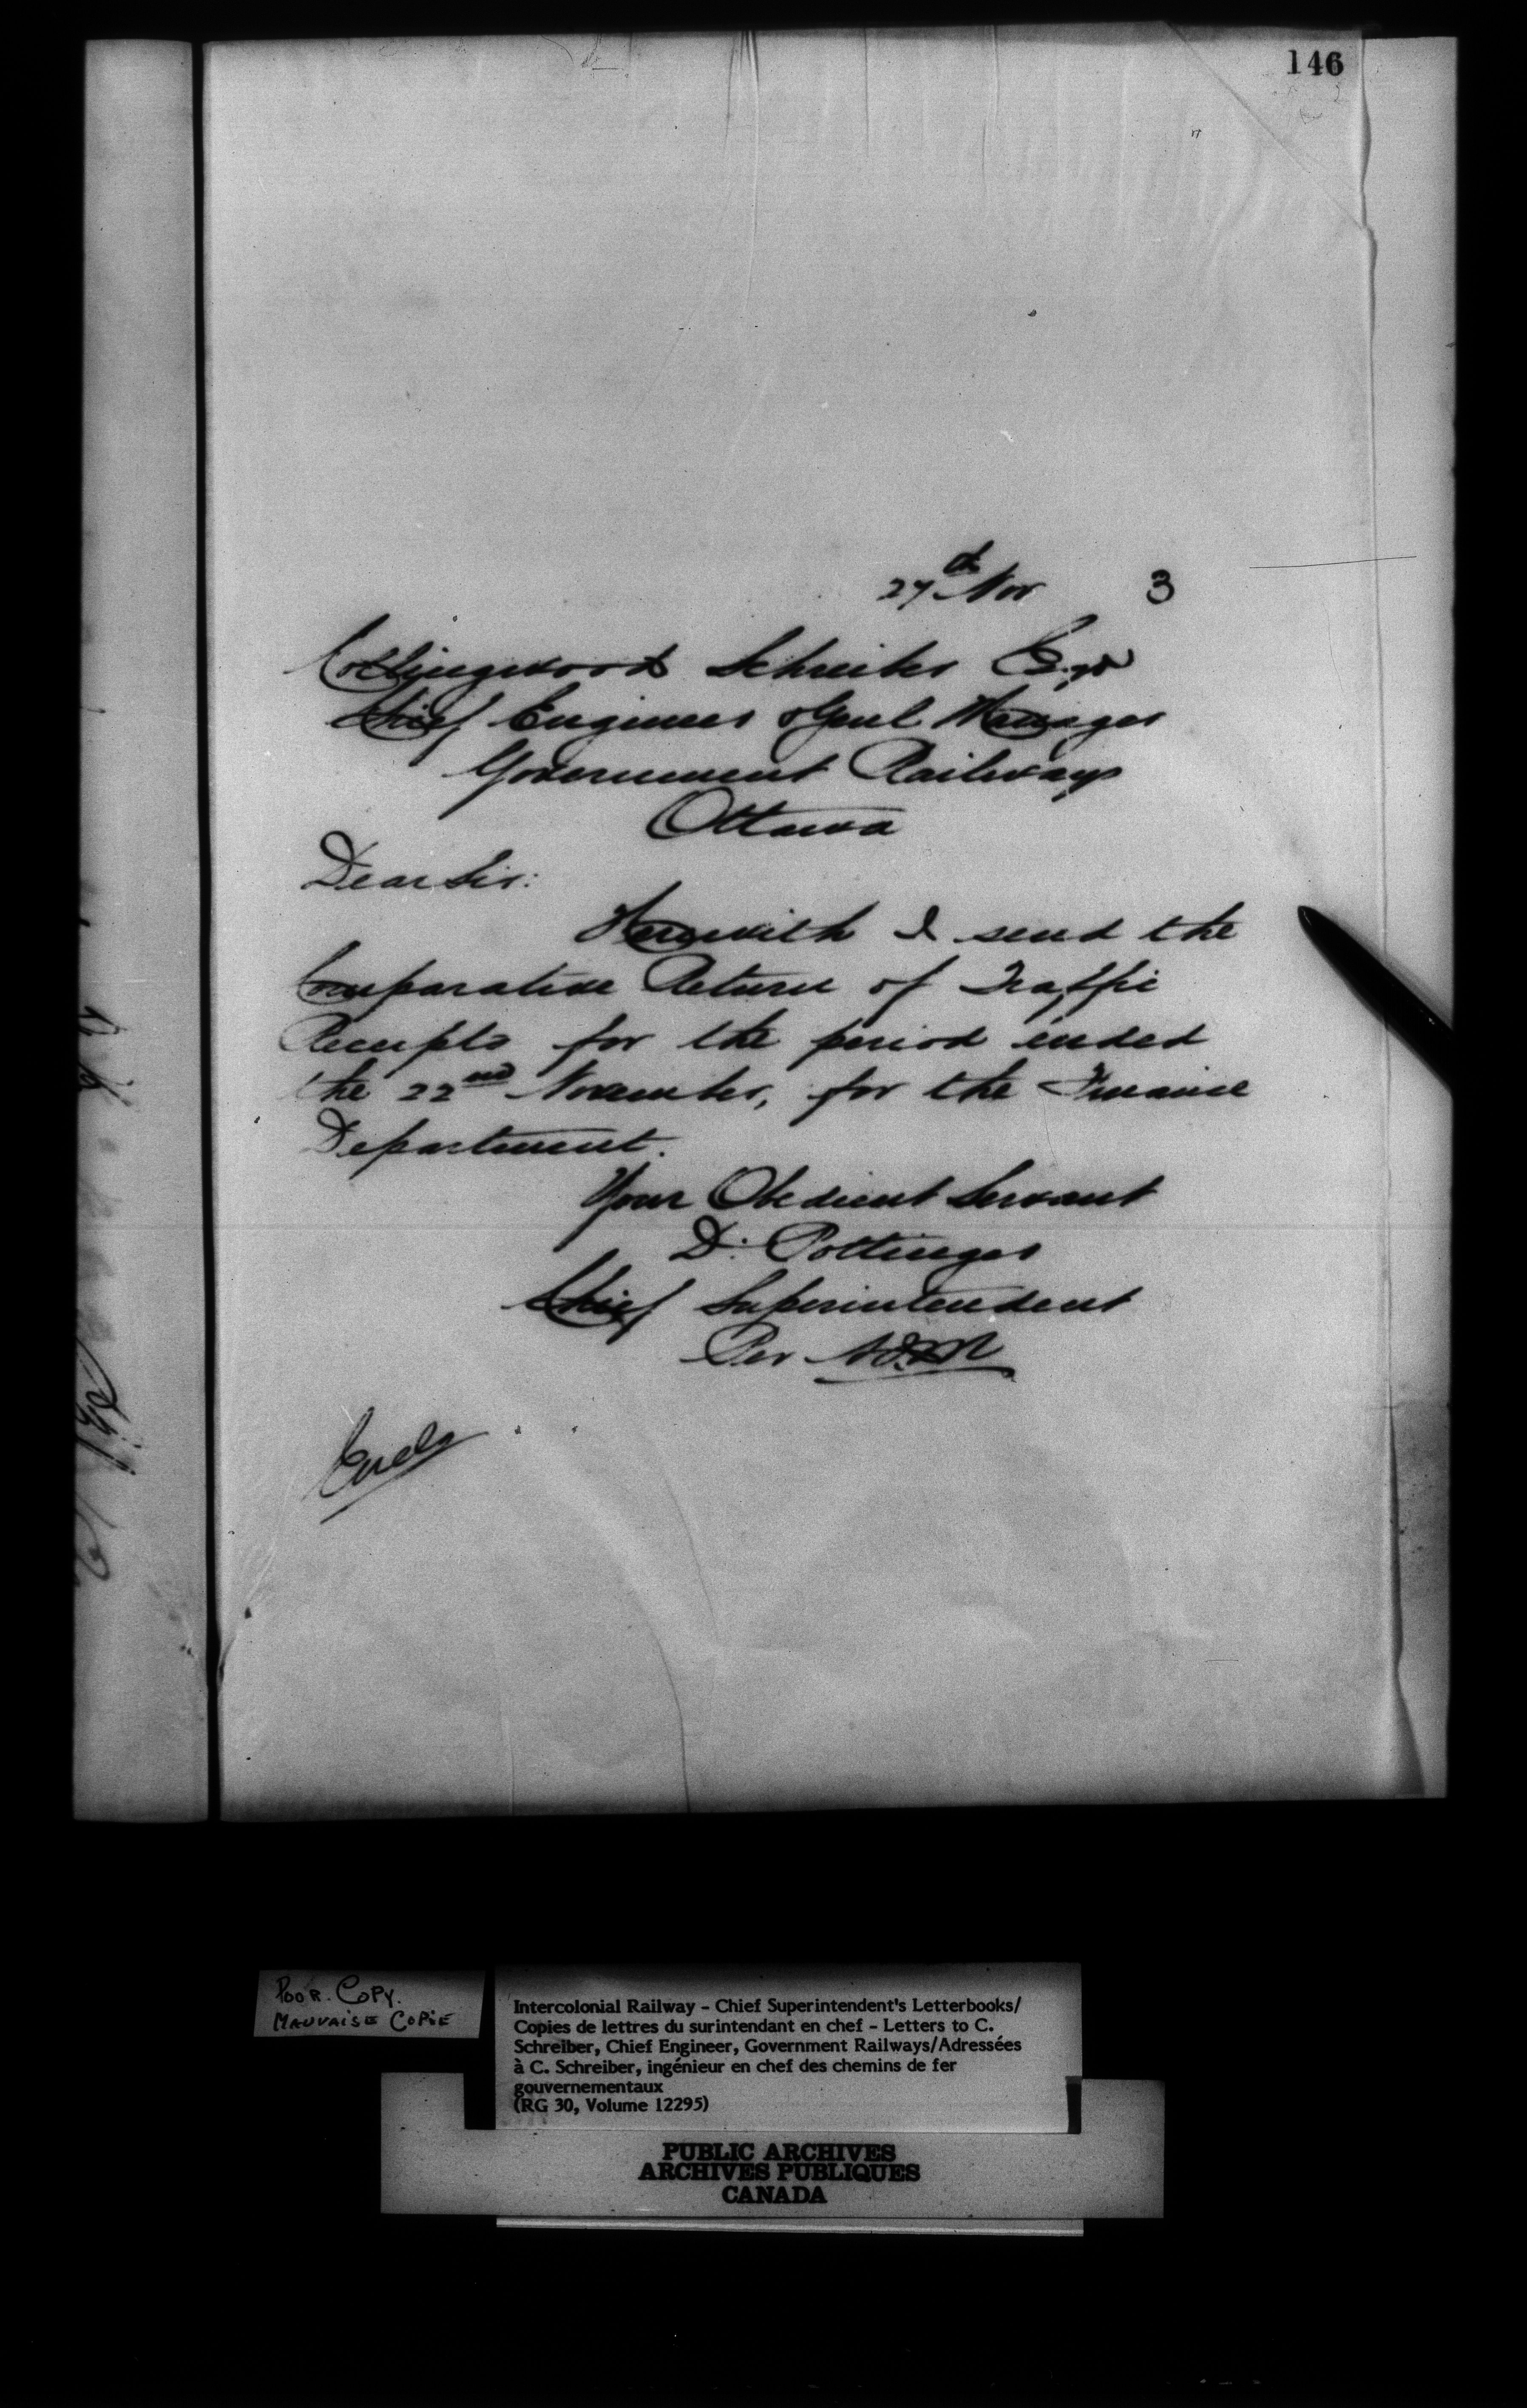 146
27th Nov 3
Collingwood Schreiber Esqr
Chief Engineer & Genl Manager
Government Railways
Ottawa
Dear Sir:
Herewith I send the
Comparative Return of Traffic
Receipts for the period ended
the 22nd November, for the Finance
Department.
Your Obedient Servant
D. Pottinger
Chief Superintendent
Per
Encls
POOR. COPY.
MAUVAISE COPIE
Intercolonial Railway - Chief Superintendent's Letterbooks/
Copies de lettres du surintendant en chef - Letters to C.
Schreiber, Chief Engineer, Government Railways/Adressées
à C. Schreiber, ingénieur en chef des chemins de fer
gouvernementaux
(RG 30, Volume 12295)
PUBLIC ARCHIVES
ARCHIVES PUBLIQUES
CANADA